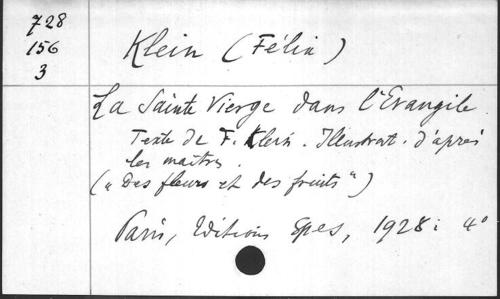 728
156
3
Klein (Félix)
La Sainte Vierge dans l'Evangile
Texte de F. Klein. Illustrat. d'après
les maîtres.
("Des fleurs et des fruits")
Paris, Editions Spes, 1928; 4°